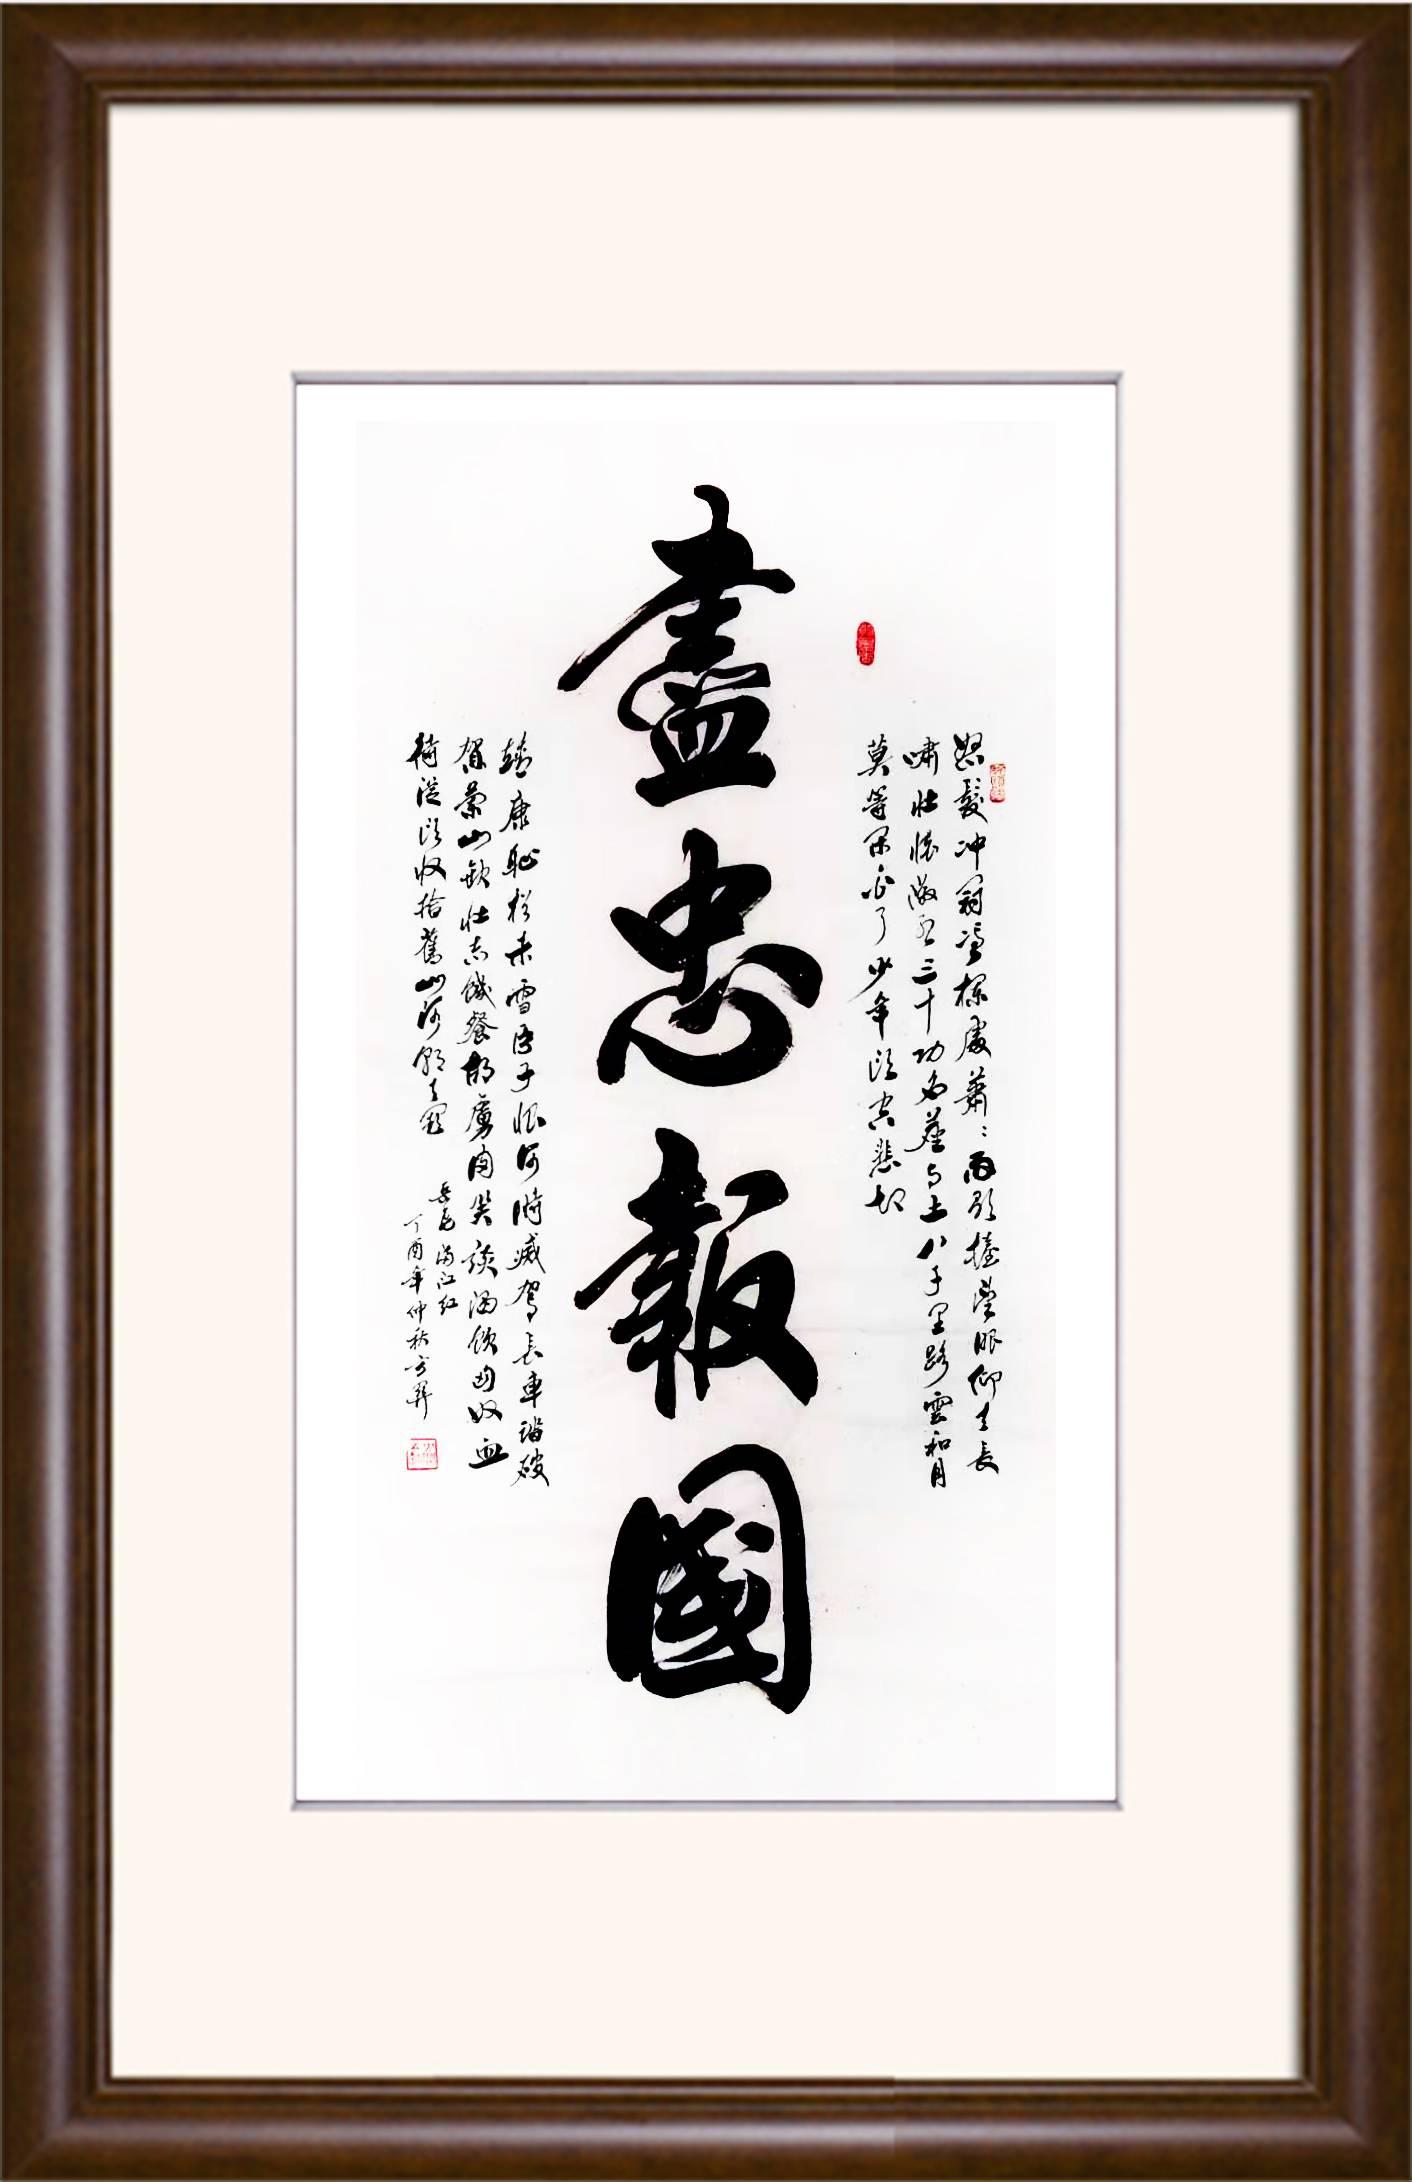 盡忠報國
怒髮冲冠憑欄處蕭〻雨歇擡望眼仰天長
嘯壯懷激烈三十功名塵与土八千里路雲和月
莫等閑白了少年頭空悲切
靖康恥猶未雪臣子恨何時滅駕長車踏破
賀蘭山缺壯志饑餐胡虜肉笑談渴飲匈奴血
待從頭收拾舊山河朝天闕
岳飛滿江紅
丁酉年仲秋